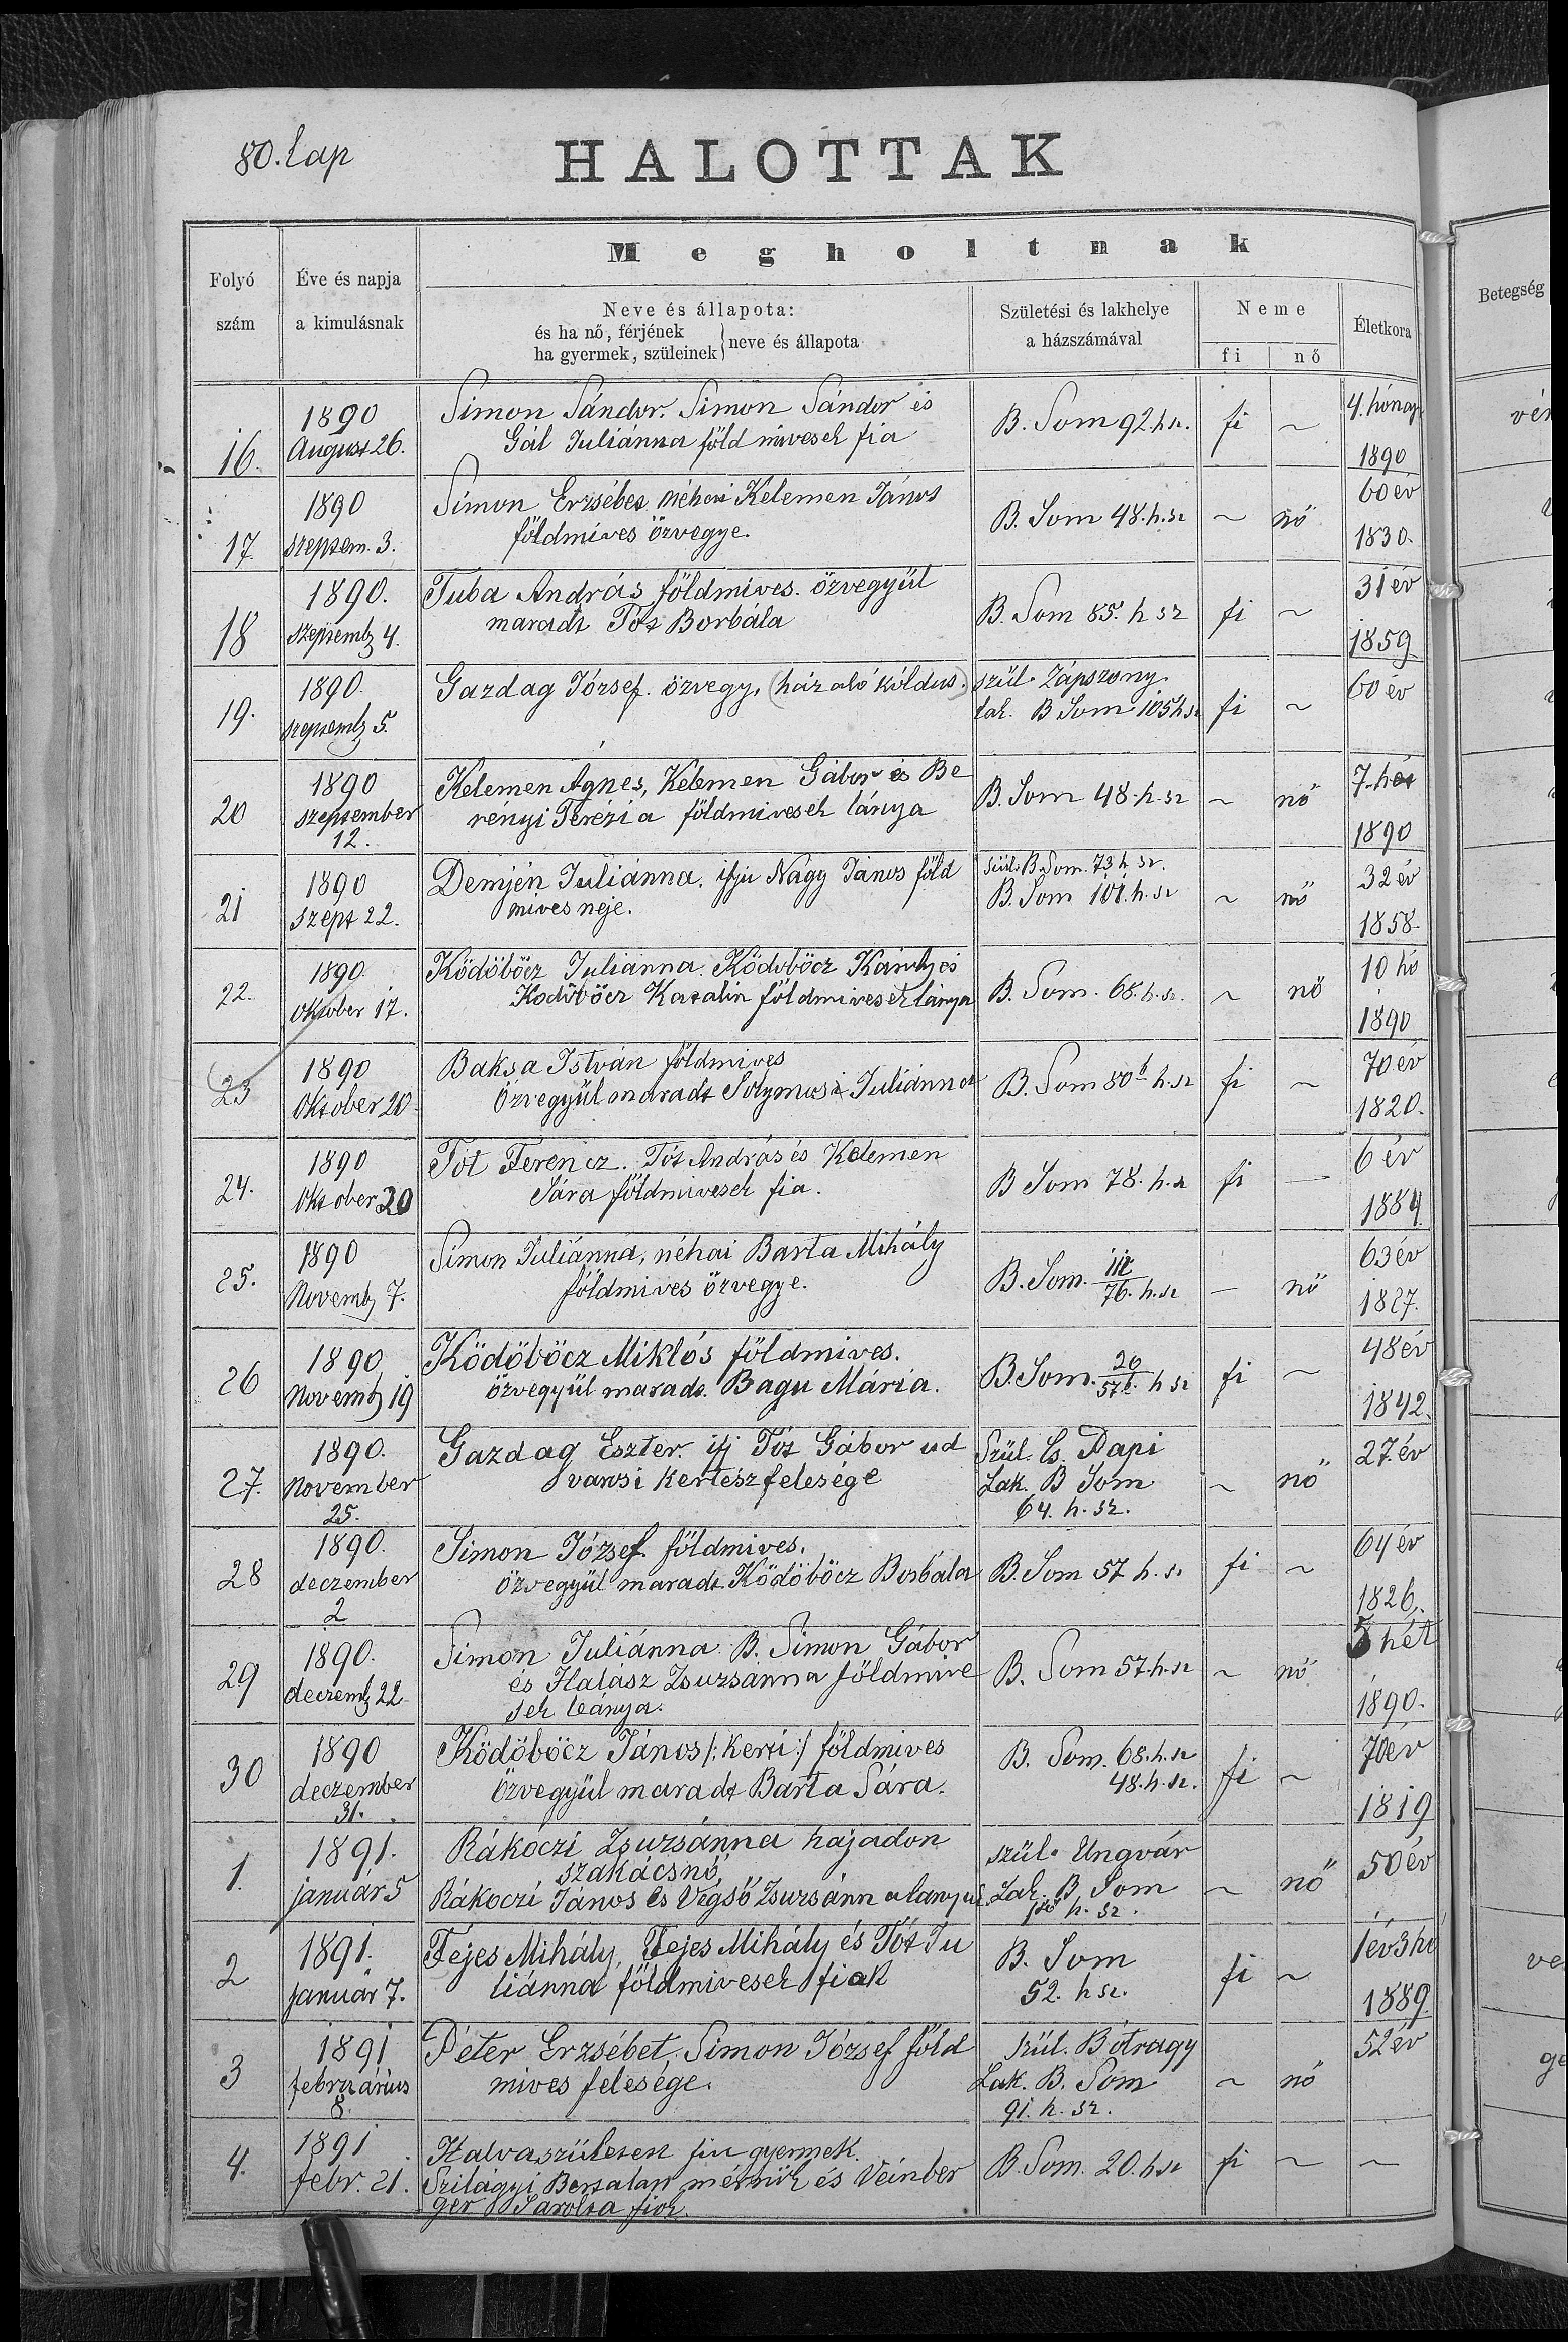 80. lap
HALOTTAK
Megholtnak
Folyó szám
Éve és napja a kimulásnak
Neve és állapota:
és ha nő, férjének
ha gyermek, szüleinek } neve és állapota
Születési és lakhelye a házszámával
Neme
fi | nő
Életkora
Betegség
16. 1890 August 26. Simon Sándor. Simon Sándor és B. Som 92. h sz. fi ~ 4. hónap
Gál Juliánna földmivesek fia 1890
17. 1890 Szeptem. 3. Simon Erzsébet néhai Kelemen János B. Som 48. h. sz ~ nő 60 év
földmives özvegye. 1830.
18 1890. Szeptemb 4. Tuba András földmives. özvegyül B. Som 85. h sz fi ~ 31 év
maradt Tót Borbála 1859
19. 1890. szeptemb 5. Gazdag József. özvegy, (házaló kóldus.) szül. Zápszony. fi ~ 60 év
Lak. B Som 105 h sz
20 1890 szeptember 12. Kelemen Ágnes, Kelemen Gábor és Be B. Som 48. h. sz ~ nő 7. hét
rényi Terézia földmivesek lánya 1890
21 1890 Szept 22. Demjén Juliánna. ifju Nagy János föld szül. B. Som. 73 h. sz. ~ nő 32 év
mives neje. B. Som 101. h. sz 1858.
22. 1890. Oktober 17. Ködöböcz Juliánna. Ködöböcz Károly és B. Som. 68. h. sz. ~ nő 10 hó
Ködöböcz Katalin földmivesek lánya 1890
23 1890 Oktober 20. Baksa István földmives B. Som 80 h. sz fi ~ 70 év
Özvegyül maradt Solymosi Juliánna 1820.
24. 1890 Oktober 20 Tót Ferencz. Tót András és Kelemen B Som 78. h. sz fi — 6 év
Sára földmivesek fia. 1884
25. 1890 Novemb 7. Simon Juliánna, néhai Barta Mihály B. Som. 76. h. sz — nő 63 év
földmives özvegye. 1827.
26 1890 Novemb 19 Ködöböcz Miklós földmives. B. Som. 20 h sz fi ~ 48 év
özvegyül maradt. Bagu Mária. 1842.
27. 1890. November 25. Gazdag Eszter. ifj Tót Gábor ud Szül. Cs. Papi ~ nő 27. év
varosi kertész felesége Lak. B Som
64. h. sz.
28 1890. deczember 2 Simon József. földmives. B. Som 57 h. sz fi ~ 64 év
özvegyül maradt. Ködöböcz Borbála 1826.
29 1890. deczemb 22 Simon Juliánna. B. Simon Gábor B. Som 57. h. sz ~ nő 5 hét
és Halász Zsuzsánna földmive
sek leánya. 1890.
30 1890 deczember 31. Ködöböcz János /: kerti :/ földmives B. Som. 68. h. sz fi ~ 70 év
Özvegyül maradt Barta Sára. 48. h. sz. 1819
1. 1891. január 5 Rákóczi Zsuzsánna hajadon szül. Ungvár ~ nő 50 év
szakácsnő,
Rákoczi János és Végső Zsuzsánna lányuk Lak. B Som
h. sz.
2 1891. január 7. Fejes Mihály, Fejes Mihály és Tót Ju B. Som fi ~ 1 év 3 hó
liánna földmivesek fiok 52. h sz. 1889
3 1891 februárius 8. Péter Erzsébet. Simon József föld Szül. Bótragy ~ nő 52 év
mives felesége. Lak. B. Som
91. h. sz.
4. 1891 febr. 21. Halvaszületett fiu gyermek. B. Som. 20. h sz fi ~ ~
Szilágyi Bertalan mérnök és Veinber
ger Sarolta fiok.